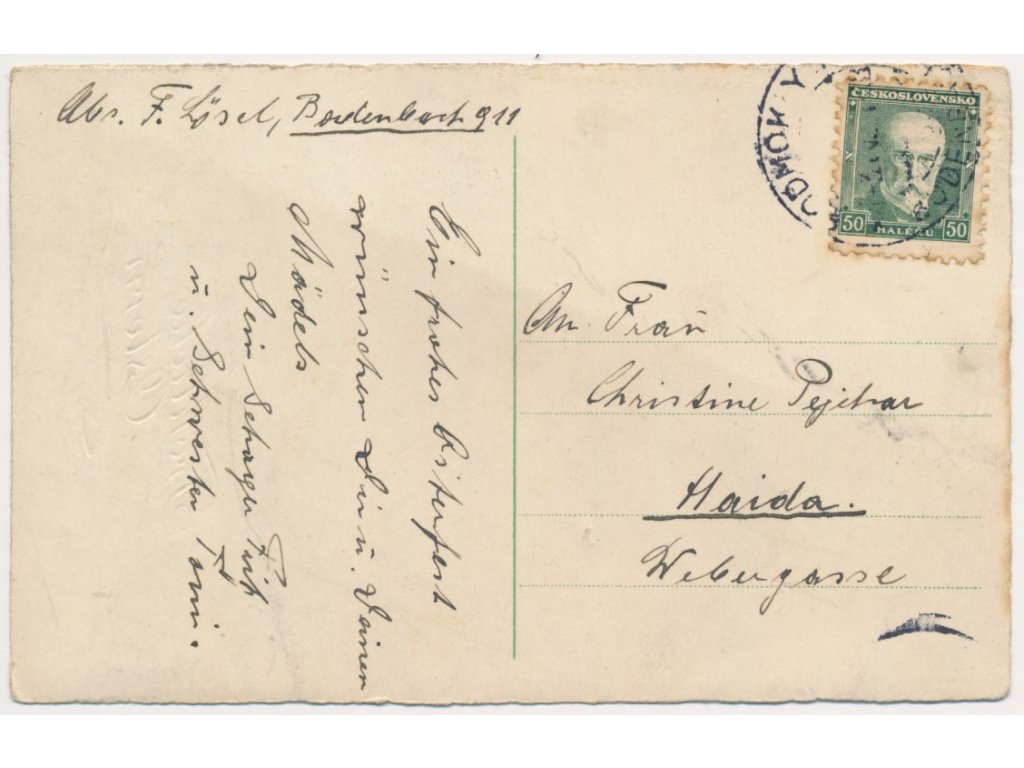 Abs. F. Lösel, Bodenbach 911
Ein frohes Osterfest
wünschen Dir u. Deinen
Mädels
Dein Schager Fritz
u. Schwester Toni.
ČESKOSLOVENSKO
50 HALÉŘŮ 50
PODMOKLY
BODENB
An Frau
Christine
Haida.
Webergasse